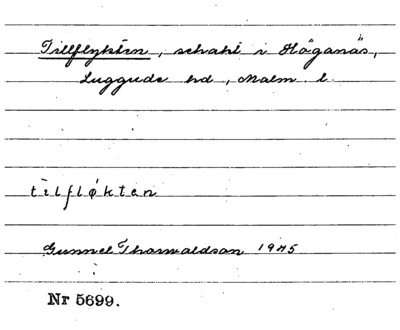 Tillflykten, schakt i Höganäs,
Luggude hd, Malm. l.
tilfløktan
Gunnel Thorwaldson 1945
Nr 5699.